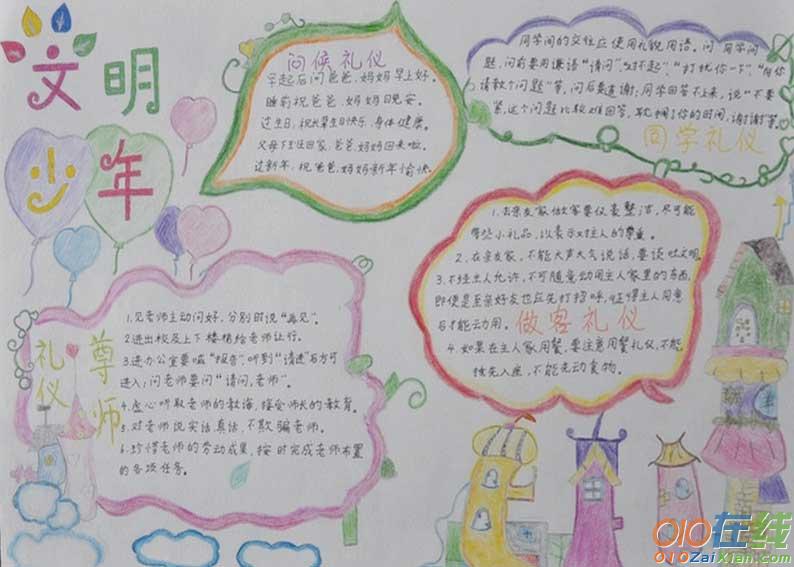 文明
少年
问候礼仪
早起后问爸爸,妈妈早上好。
睡前祝爸爸,妈妈晚安。
过生日,祝长辈生日快乐,身体健康。
父母下班回家,爸爸,妈妈回来啦。
过新年,祝爸爸,妈妈新年愉快。
同学间的交往应使用礼貌用语。问同学问
题,问前要用谦语“请问”,“对不起”,“打扰你一下”,“向你
请教个问题”等,问后要道谢;同学回答不上来,说“不要
紧,这个问题比较难回答,耽搁了你的时间,谢谢”等。
同学礼仪
1.去亲友家做客要仪表整洁,尽可能
带些小礼品,以表示对主人的尊重。
2.在亲友家,不能大声大气说话,要谈吐文明。
3.不经主人允许,不可随意动用主人家里的东西,
即使是至亲好友也应先打招呼,征得主人同意
后才能动用。
做客礼仪
4.如果在主人家用餐,要注意用餐礼仪,不能
抢先入座,不能先动食物。
尊师
礼仪
1.见老师主动问好,分别时说“再见”。
2.进出校及上下楼梯给老师让行。
3.进办公室要喊“报告”,听到“请进”后方可
进入;问老师要问“请问,老师”。
4.虚心听取老师的教诲,接受师长的教育。
5.对老师说实话真话,不欺骗老师。
6.珍惜老师的劳动成果,按时完成老师布置
的各项任务。
010在线
010ZaiXian.com